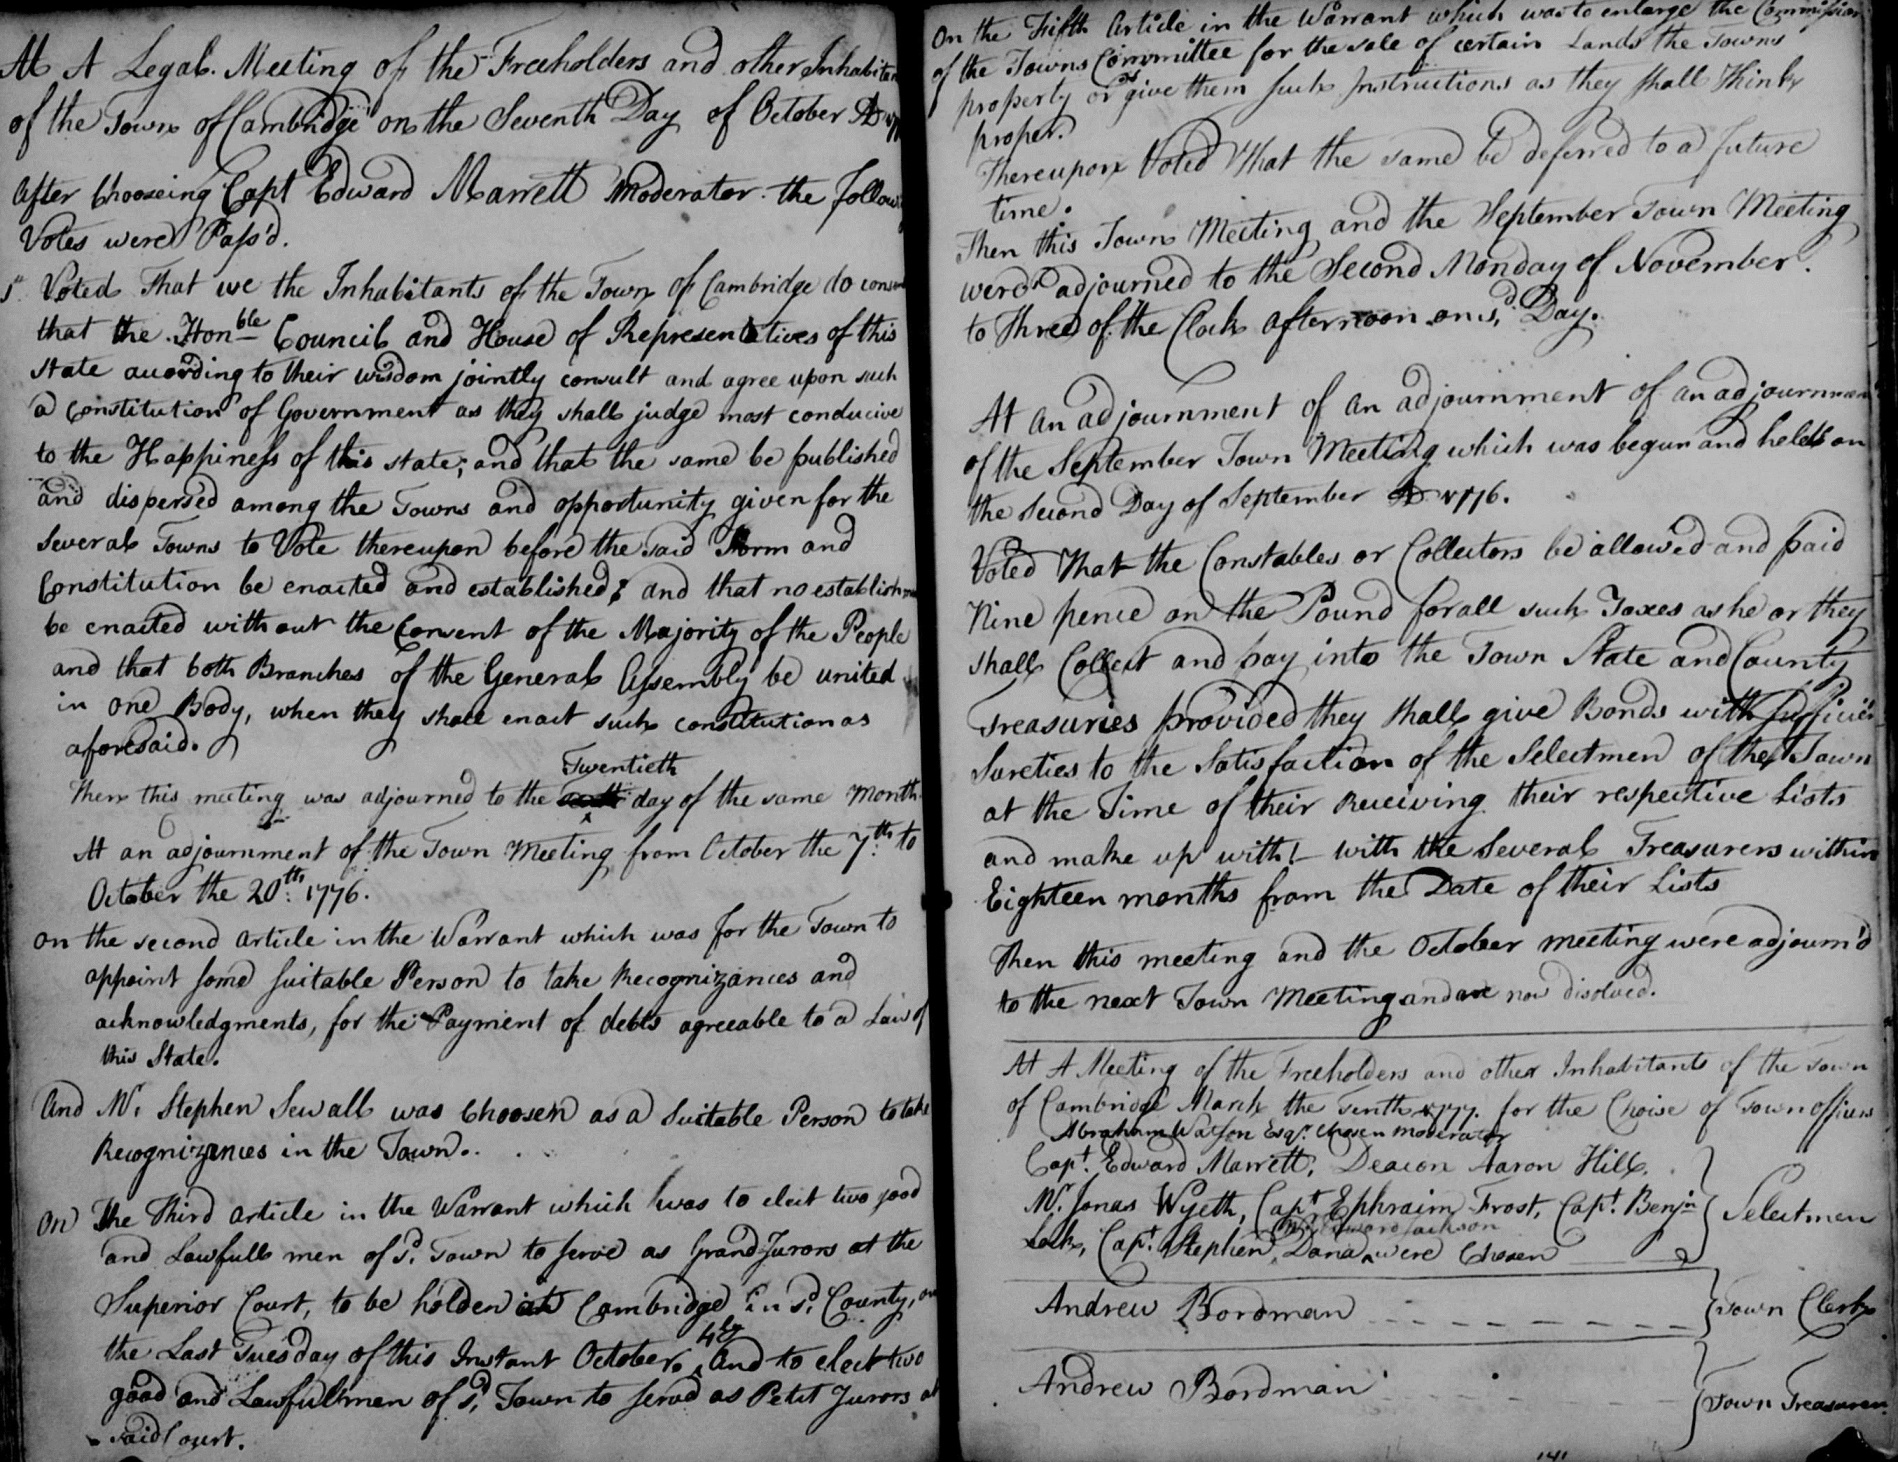 At A Legal Meeting of the Freeholders and other Inhabitan
of the Town of Cambridge on the Seventh Day of October AD
after Chooseing Capt Edward Marrett Moderator the follow
Votes were Pass'd.
1st Voted That we the Inhabitants of the Town of Cambridge do conse
that the Honble Council and House of Representatives of this
state according to their wisdom jointly consult and agree upon such
a Constitution of Government as they shall judge most conducive
to the Happiness of this state; and that the same be published
and dispersed among the Towns and opportunity given for the
Several Towns to Vote thereupon before the said Form and
Constitution be enacted and established; and that no establishm
be enacted without the Consent of the Majority of the People
and that both Branches of the General Assembly be united
in one Body, when they shall enact such constitution as
aforesaid.
Twentieth
Then this meeting was adjourned to the day of the same Month
At an adjournment of the Town Meeting from October the 7th. to
October the 20th. 1776.
On the second article in the Warrant which was for the Town to
appoint some suitable Person to take Recognizances and
acknowledgments, for the Payment of debts agreeable to a Law of
this State.
And Mr. Stephen Sewall was Choosen as a Suitable Person to take
Recognizances in the Town.
On the Third article in the Warrant which was to elect two good
and Lawfull men of sd. Town to serve as Grand Jurors at the
Superior Court, to be holden at Cambridge in sd. County, on
the Last Tuesday of this Instant October, And to elect two
good and Lawfull men of sd. Town to serve as Petit Jurors at
said Court.
On the Fifth Article in the Warrant which was to enlarge the Commission
of the Towns Committee for the sale of certain Lands the Towns
property or give them such Instructions as they shall Think
proper.
Thereupon Voted That the same be deferred to a future
time.
Then this Town Meeting and the September Town Meeting
were adjourned to the Second Monday of November
to Three of the Clock afternoon on sd. Day.
At an adjournment of an adjournment of an adjournmen
of the September Town Meeting which was begun and held on
the Second Day of September AD 1776.
Voted That the Constables or Collectors be allowed and paid
Nine pence on the Pound for all such Taxes as he or they
shall Collect and pay into the Town State and County
Treasuries provided they shall give Bonds with sufficien
Sureties to the Satisfaction of the Selectmen of the Town
at the Time of their Receiving their respective Lists
and make up with with the Several Treasurers within
Eighteen months from the Date of their Lists
Then this meeting and the October meeting were adjourn'd
to the next Town Meeting and are now disolved.
At A Meeting of the Freeholders and other Inhabitants of the Town
of Cambridge March the Tenth 1777. for the Choise of Town officers
Abraham Watson Esqr. Chosen Moderator
Capt. Edward Marrett, Deacon Aaron Hill.
Mr. Jonas Wyeth, Capt Ephraim Frost, Capt. Benjn
Selectmen
Mr. Edward Jackson
Lock, Capt. Stephen Dana, were Chosen
Andrew Bordman Town Clerk
Andrew Bordman Town Treasurer